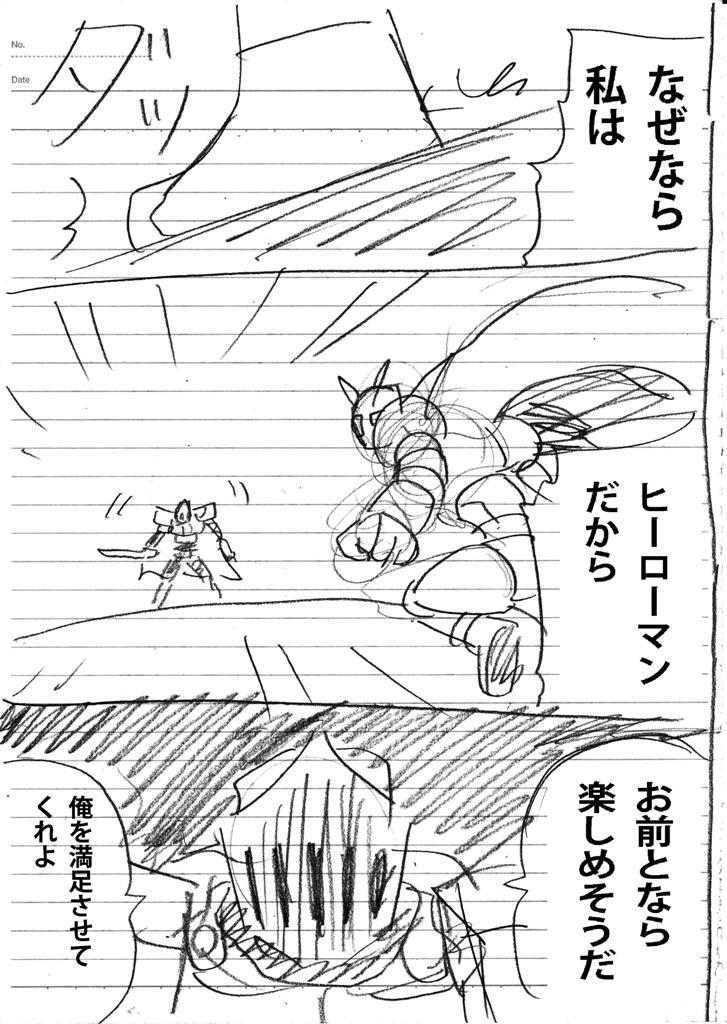 No.
Date
なぜなら
私は
ダッ
ヒーローマン
だから
お前となら
楽しめそうだ
俺を満足させて
くれよ